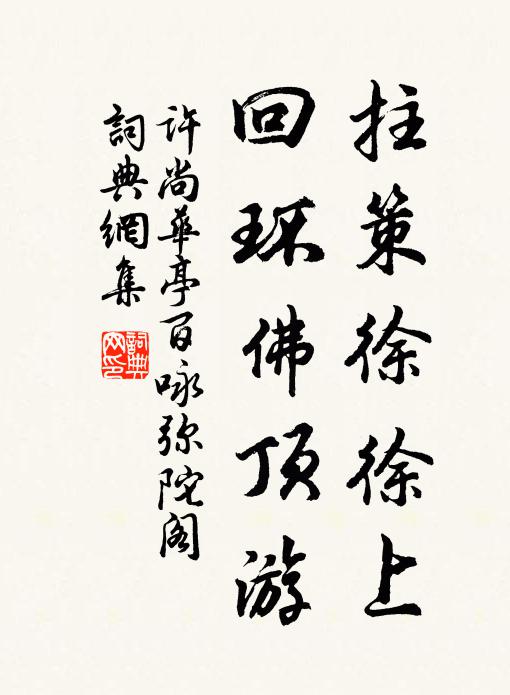 拄策徐徐上
回环佛顶游
许尚华亭百咏弥陀阁
詞典網集
詞典网印